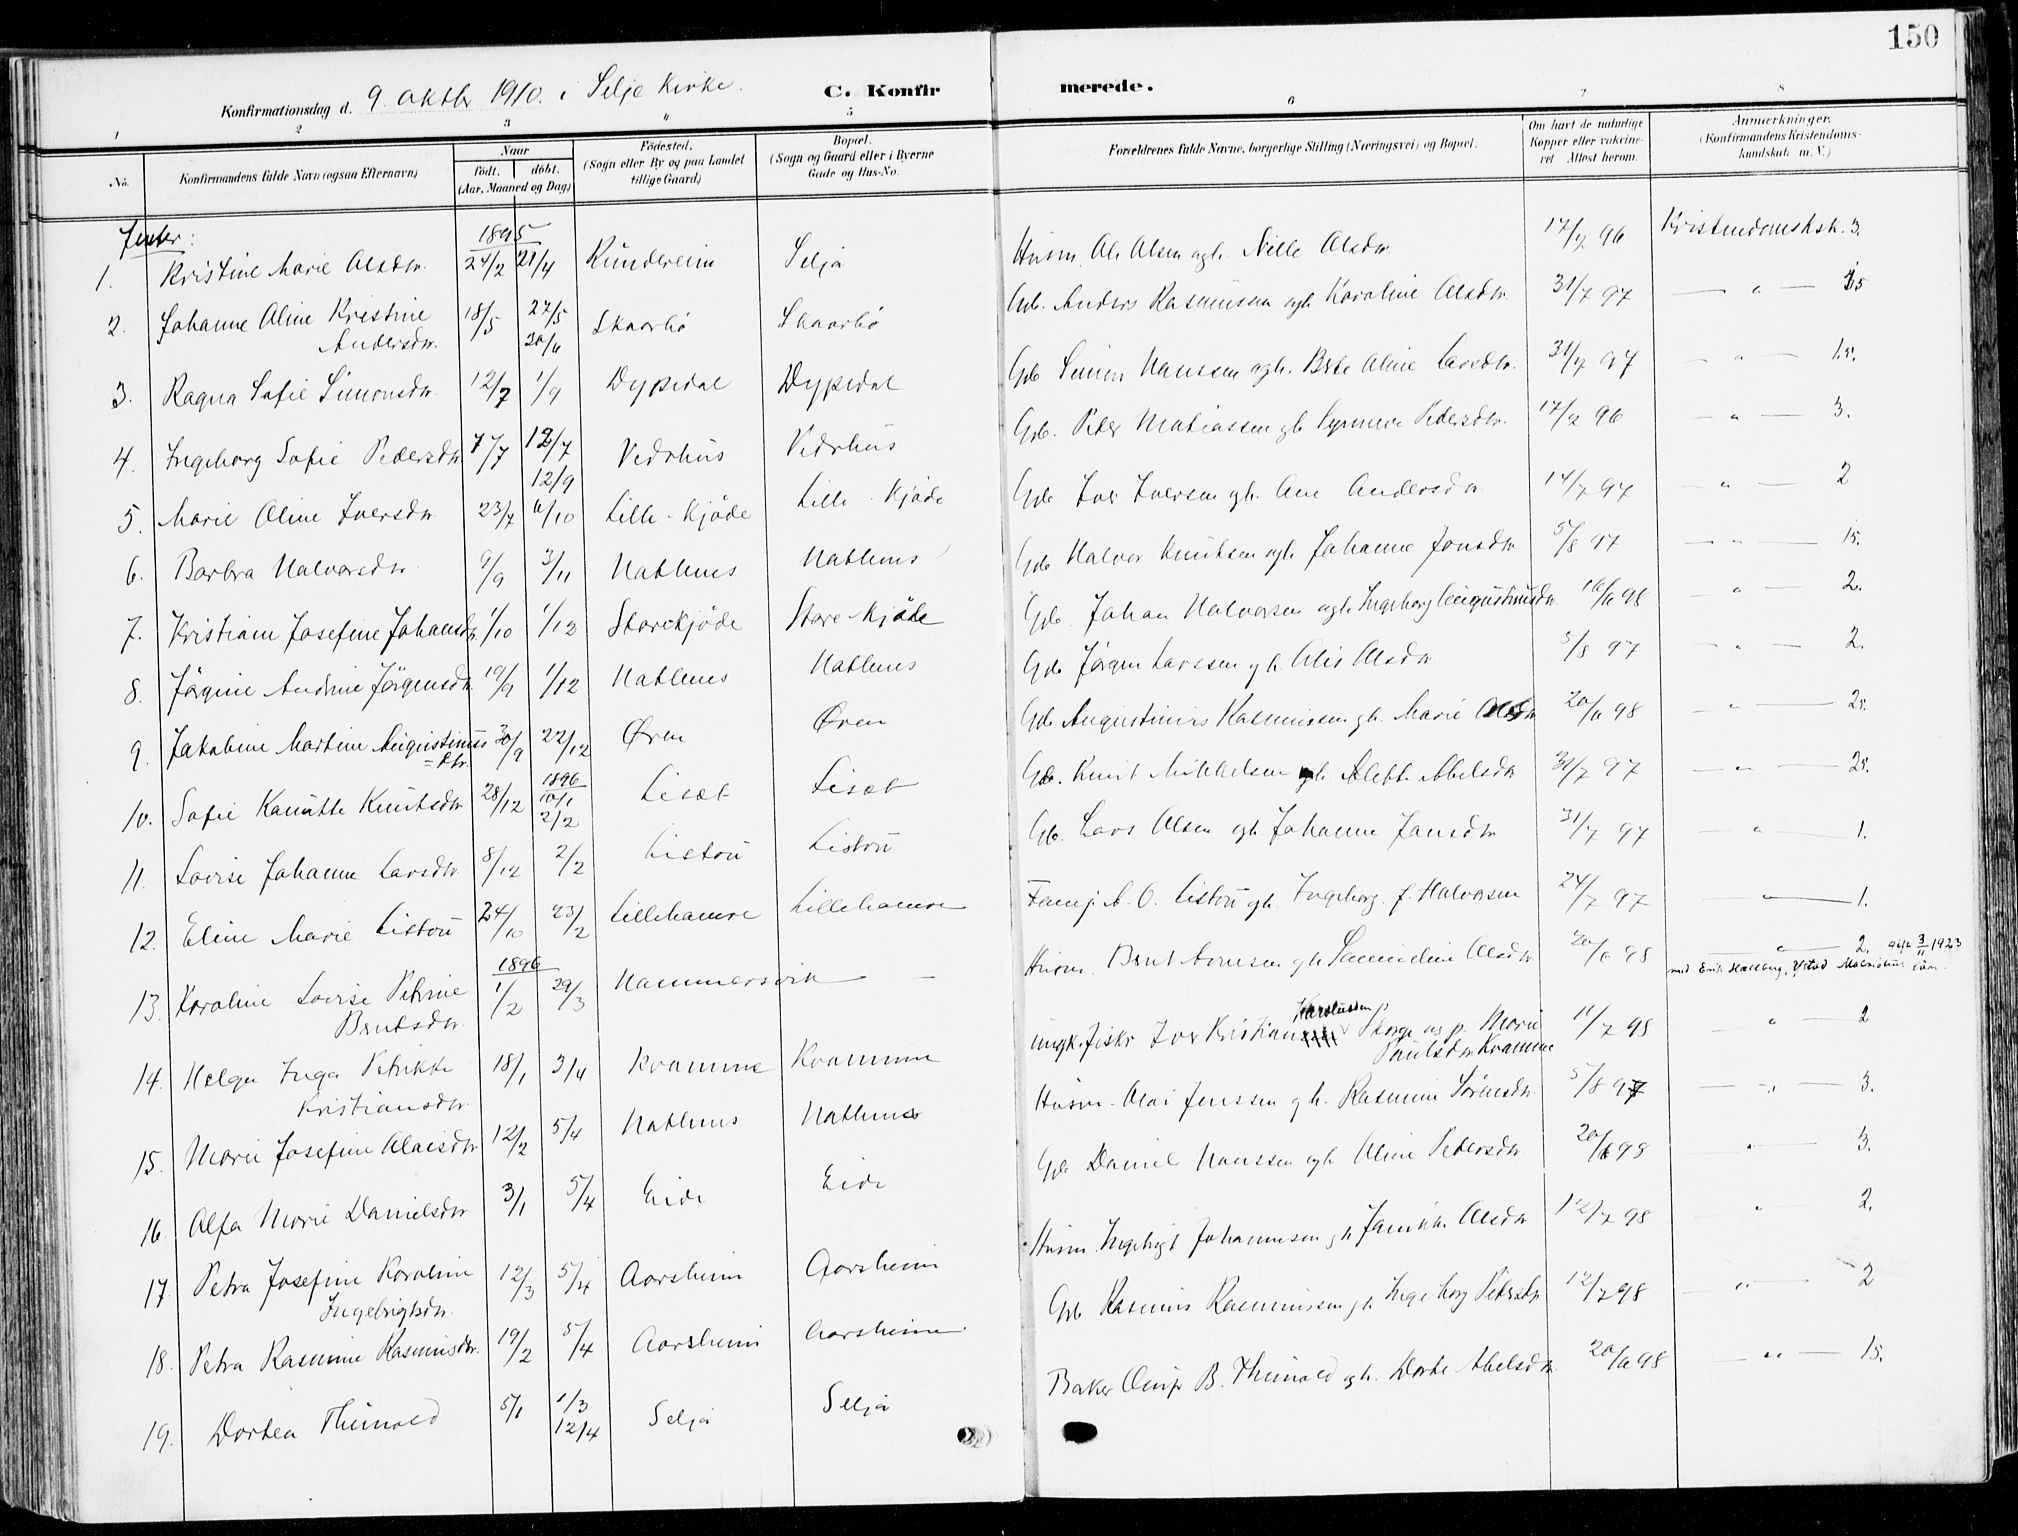 150
Konfirmationsdag d. 9. Oktbr 1910. i Selje Kirke. C. Konfirmerede.
1 2 3 4 5 6 7 8
No. Konfirmandens fulde Navn (ogsaa Efternavn) Naar født. døbt. (Aar, Maaned og Dag) Fødested. (Sogn eller By og paa Landet tillige Gaard) Bopæl. (Sogn og Gaard eller i Byerne Gade og Hus-No. Forældrenes fulde Navne, borgerlige Stilling (Næringsvei) og Bopæl. Om havt de naturlige Kopper eller vakcineret. Attest herom. Anmærkninger. (Konfirmandens Kristendomskundskab m. V.)
Jenter: 1895
1. Kristine Marie Olsdtr. 24/2 21/4 Rundereim Selja Husm. Ole Olsen ogh. Nille Olsdtr. 17/7 96 Kristendomsksk. 3.
2. Johanne Oline Kristine Andersdtr. 18/5 27/5 30/6 Skaarbø Skaarbø Gdb. Anders Rasmussen ogh. Karoline Olsdtr. 31/7 97 — " — 1.5
3. Ragna Sofie Simonsdtr. 12/7 1/9 Dypedal Dypedal Gdb. Simon Hanssen ogh. Brte Oline Larsdtr. 31/7 97 — " — 1.5.
4. Ingeborg Sofie Pedersdtr 7/7 12/7 12/9 Vedvhus Vedvhus Gdb. Peder Matiassen gh Synneve Pedersdtr. 17/7 96 — " — 3.
5. Marie Oline Iversdtr 23/7 6/10 Lille-Kjøde Lille-Kjøde Gdb Iver Iversen gh. Ane Andersdtr. 14/7 97 — " — 2
6. Barbra Halvorsdtr 9/9 3/11 Hatlenes Hatlenes Gdb Halvor Knutsen ogh. Johanne Jonsdtr 5/8 97 — " — 1.5.
7. Kristiane Josefine Johansdtr. 1/10 1/12 Storekjøde Store-Kjøde Gdb. Johan Halvorsen ogh. Ingeborg Augustinusdtr 16/6 98 — " — 2.
8. Jørgine Andrine Jørgensdtr. 19/9 1/12 Hatlenes Hatlenes Gdb Jørgen Larssen gh. Olis Olsdtr 5/8 97 — " — 2.
9. Jakobine Martine Augustinus=dtr. 30/9 22/12 Øren Øren Gdb Augustinus Rasmussen gh. Marie Olsdtr 20/6 98 — " — 2.5.
10. Sofie Kanutte Knutsdtr 28/12 1896 10/1 2/2 Liset Liset Gdb. Knut Mikkelsen gh. Alette Abelsdtr 31/7 97 — " — 2.5.
11. Lovise Johanne Larsdtr 8/12 2/2 Listou Listou Gdb. Lars Olsen ogh. Johanne Jansdtr 31/7 97 — " — 1.
12. Eline Marie Listou 24/10 23/2 Lillehamre Lillehamre A. O. Listou gh. Ingeborg f. Halvorsen 24/7 97 — " — 1.
13. Karoline Lovise Petrine Berntsdtr 1896 1/2 29/3 Hammersvik — Husm. Bernt Arnesen gh Samueline Olsdtr 20/6 98 — " — 2. gift 3/11 1923 med Erik Ystad Malmøhus län.
14. Helga Inga Petrikke Kristiansdtr 18/1 3/4 Kvamme Kvamme ungk. fiskr Iver Kristian Karolussen Skorge og p. Marie Paulsdtr Kvamme 11/7 98 — " — 2
15. Marie Josefine Olaisdtr 12/2 5/4 Hatlenes Hatlenes Husm. Olai Jenssen gh. Rasmine Sørensdtr. 5/8 97 — " — 3.
16. Alfa Marie Danielsdtr 3/1 5/4 Eide Eide Gdb Daniel Hanssen ogh Oline Pedersdtr 20/6 98 — " — 3.
17. Petra Josefine Karoline Ingebrigtsdtr. 12/3 5/4 Aarsheim Aarsheim Husm. Ingebrigt Johannesen gh Jannikke Olsdtr 12/7 98 — " — 2.
18. Petra Rasmine Rasmusdtr. 19/2 5/4 Aarsheim Aarsheim Gdb Rasmus Rasmussen gh. Ingeborg Pedersdtr 12/7 98 — " — 2
19. Dortea Thunold 5/1 1/3 12/4 Selja Selja Baker B. Thunold ogh. Dorte Abelsdtr 20/6 98 — " — 1.5.